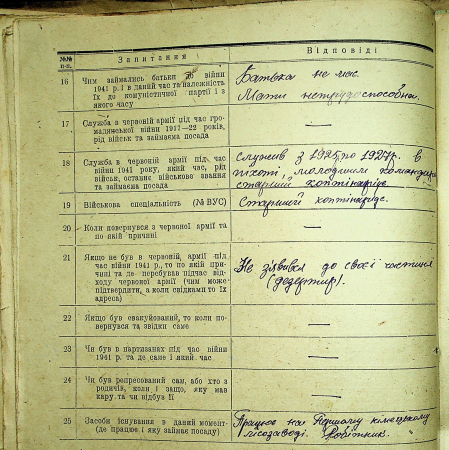 №№ п-п.
Запитання
Відповіді
16
Чим займались батьки до війни
1941 р. і в даний час та належність
їх до комуністичної партії і з
якого часу
Батька не має.
Мати нетрудоспособна.
17
Служба в червоній армії під час гро-
мадянської війни 1917—22 років,
рід військ та займаєма посада
—
18
Служба в червоній армії під час
війни 1941 року, який час, рід
військ, останнє військове звання
та займаєма посада
Служив з 1925 по 1927 р. в
піхоті, молодший командир
старший
19
Військова спеціальність (№ ВУС)
Старший
20
Коли повернувся з червоної армії та
по якій причині
—
21
Якщо не був в червоній армії під
час війни 1941 р., то по якій при-
чині та де перебував підчас від-
ходу червоної армії (чим може
підтвердити, а коли свідками то їх
адреса)
Не з'явився до своєї частини
(дезертир).
22
Якщо був евакуйований, то коли по-
вернувся та звідки саме
—
23
Чи був в партизанах під час війни
1941 р. та де саме і який час
—
24
Чи був репресований сам, або хто з
родичів, коли і защо, яку мав
кару та чи відбув її
—
25
Засоби існування в даний момент
(де працює і яку займає посаду)
Працює на Першому
лісозаводі. Робітник.